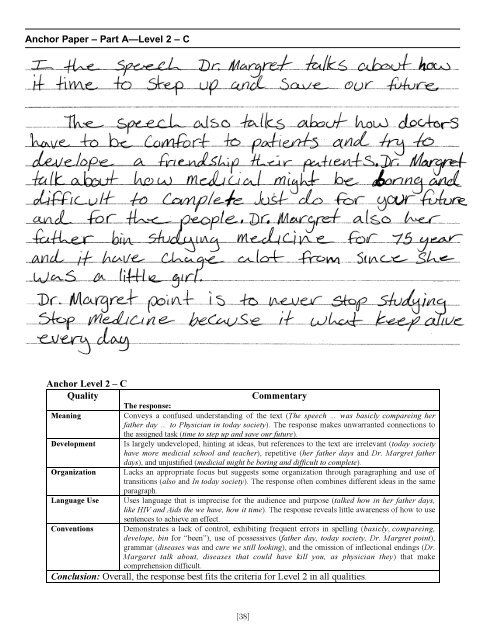 Anchor Paper – Part A—Level 2 – C
I the speech Dr. Margret talks about how
it time to step up and save our future
The speech also talks about how doctors
have to be comfort to patients and try to
develope a friendship their patients. Dr. Margret
talk about how medicial might be boring and
difficult to complete Just do for your future
and for the people. Dr. Margret also her
father bin studying medicine for 75 year
and it have chage alot from since she
was a little girl.
Dr. Margret point is to never stop studying
stop medicine because it what keep alive
every day
Anchor Level 2 – C
Quality Commentary
The response:
Meaning Conveys a confused understanding of the text (The speech ... was basicly compareing her
father day ... to Physician in today society). The response makes unwarranted connections to
the assigned task (time to step up and save our future).
Development Is largely undeveloped, hinting at ideas, but references to the text are irrelevant (today society
have more medical school and teacher), repetitive (her father days and Dr. Margret father
days), and unjustified (medicial might be boring and difficult to complete).
Organization Lacks an appropriate focus but suggests some organization through paragraphing and use of
transitions (also and In today society). The response often combines different ideas in the same
paragraph.
Language Use Uses language that is imprecise for the audience and purpose (talked how in her father days,
like HIV and Aids the we have, how it time). The response reveals little awareness of how to use
sentences to achieve an effect.
Conventions Demonstrates a lack of control, exhibiting frequent errors in spelling (basicly, compareing,
develope, bin for “been”), use of possessives (father day, today society, Dr. Margret point),
grammar (diseases was and cure we still looking), and the omission of inflectional endings (Dr.
Margaret talk about, diseases that could have kill you, as physician they) that make
comprehension difficult.
Conclusion: Overall, the response best fits the criteria for Level 2 in all qualities.
[38]